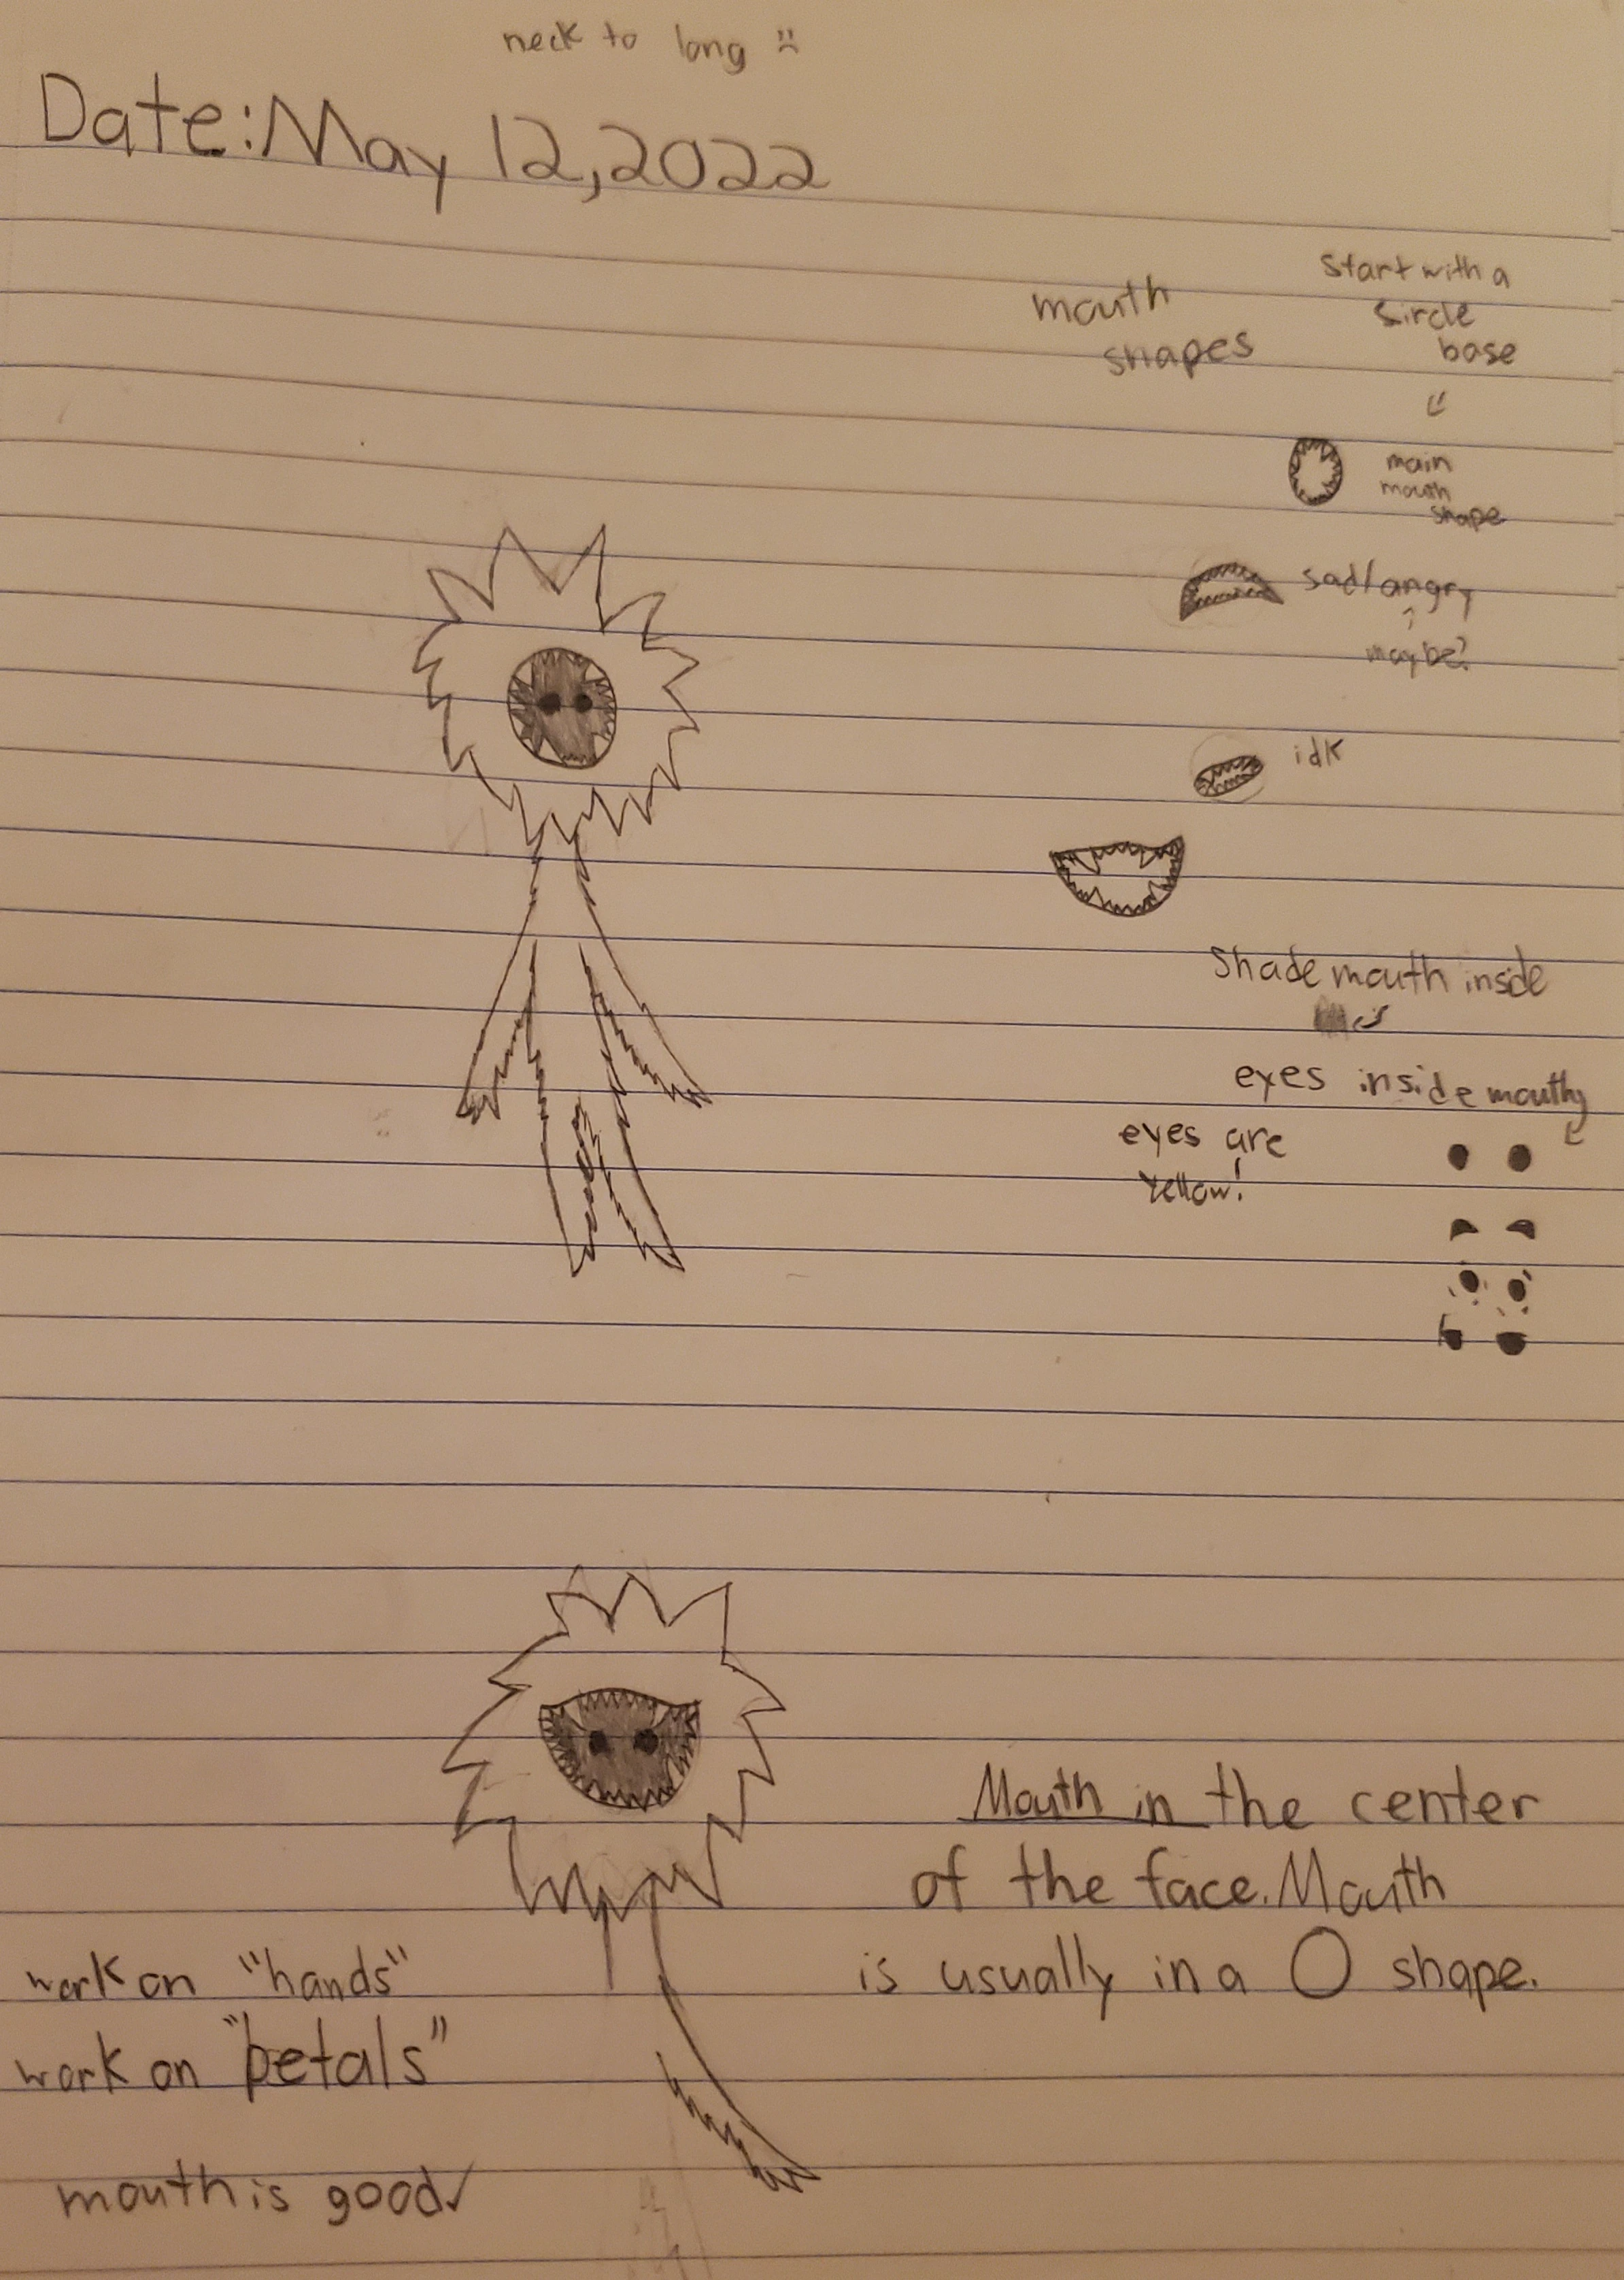 neck to long :(
Date: May 12, 2022
mouth
shapes
start with a
sircle
base
main
mouth
shape
sad/angry
maybe?
idk
Shade mouth inside
eyes inside mouth
eyes are
Yellow!
Mouth in the center
of the face. Mouth
is usually in a O shape.
work on "hands"
work on "petals"
mouth is good✓